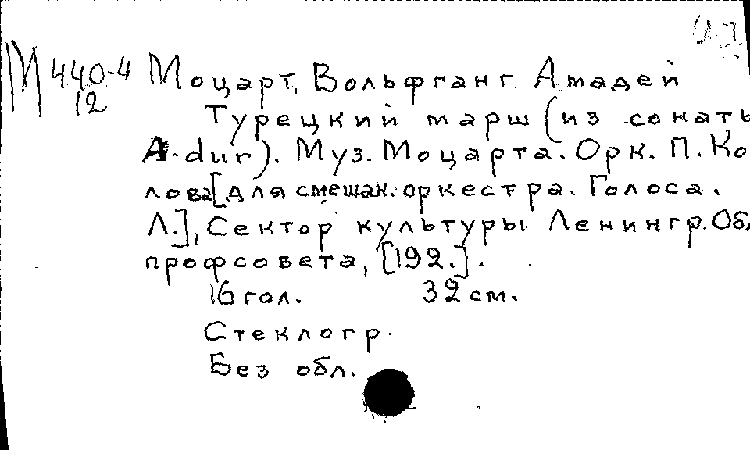 М 440-4 Моцарт, Вольфганг Амадей
12
Турецкий марш (из сонаты
A-dur). Муз. Моцарта. Орк. П. Ко
лова [для смешан. оркестра. Голоса.
Л.], Сектор культуры Ленингр. Об.
профсовета, [192.].
16 гол. 32 см.
Стеклогр.
Без обл.